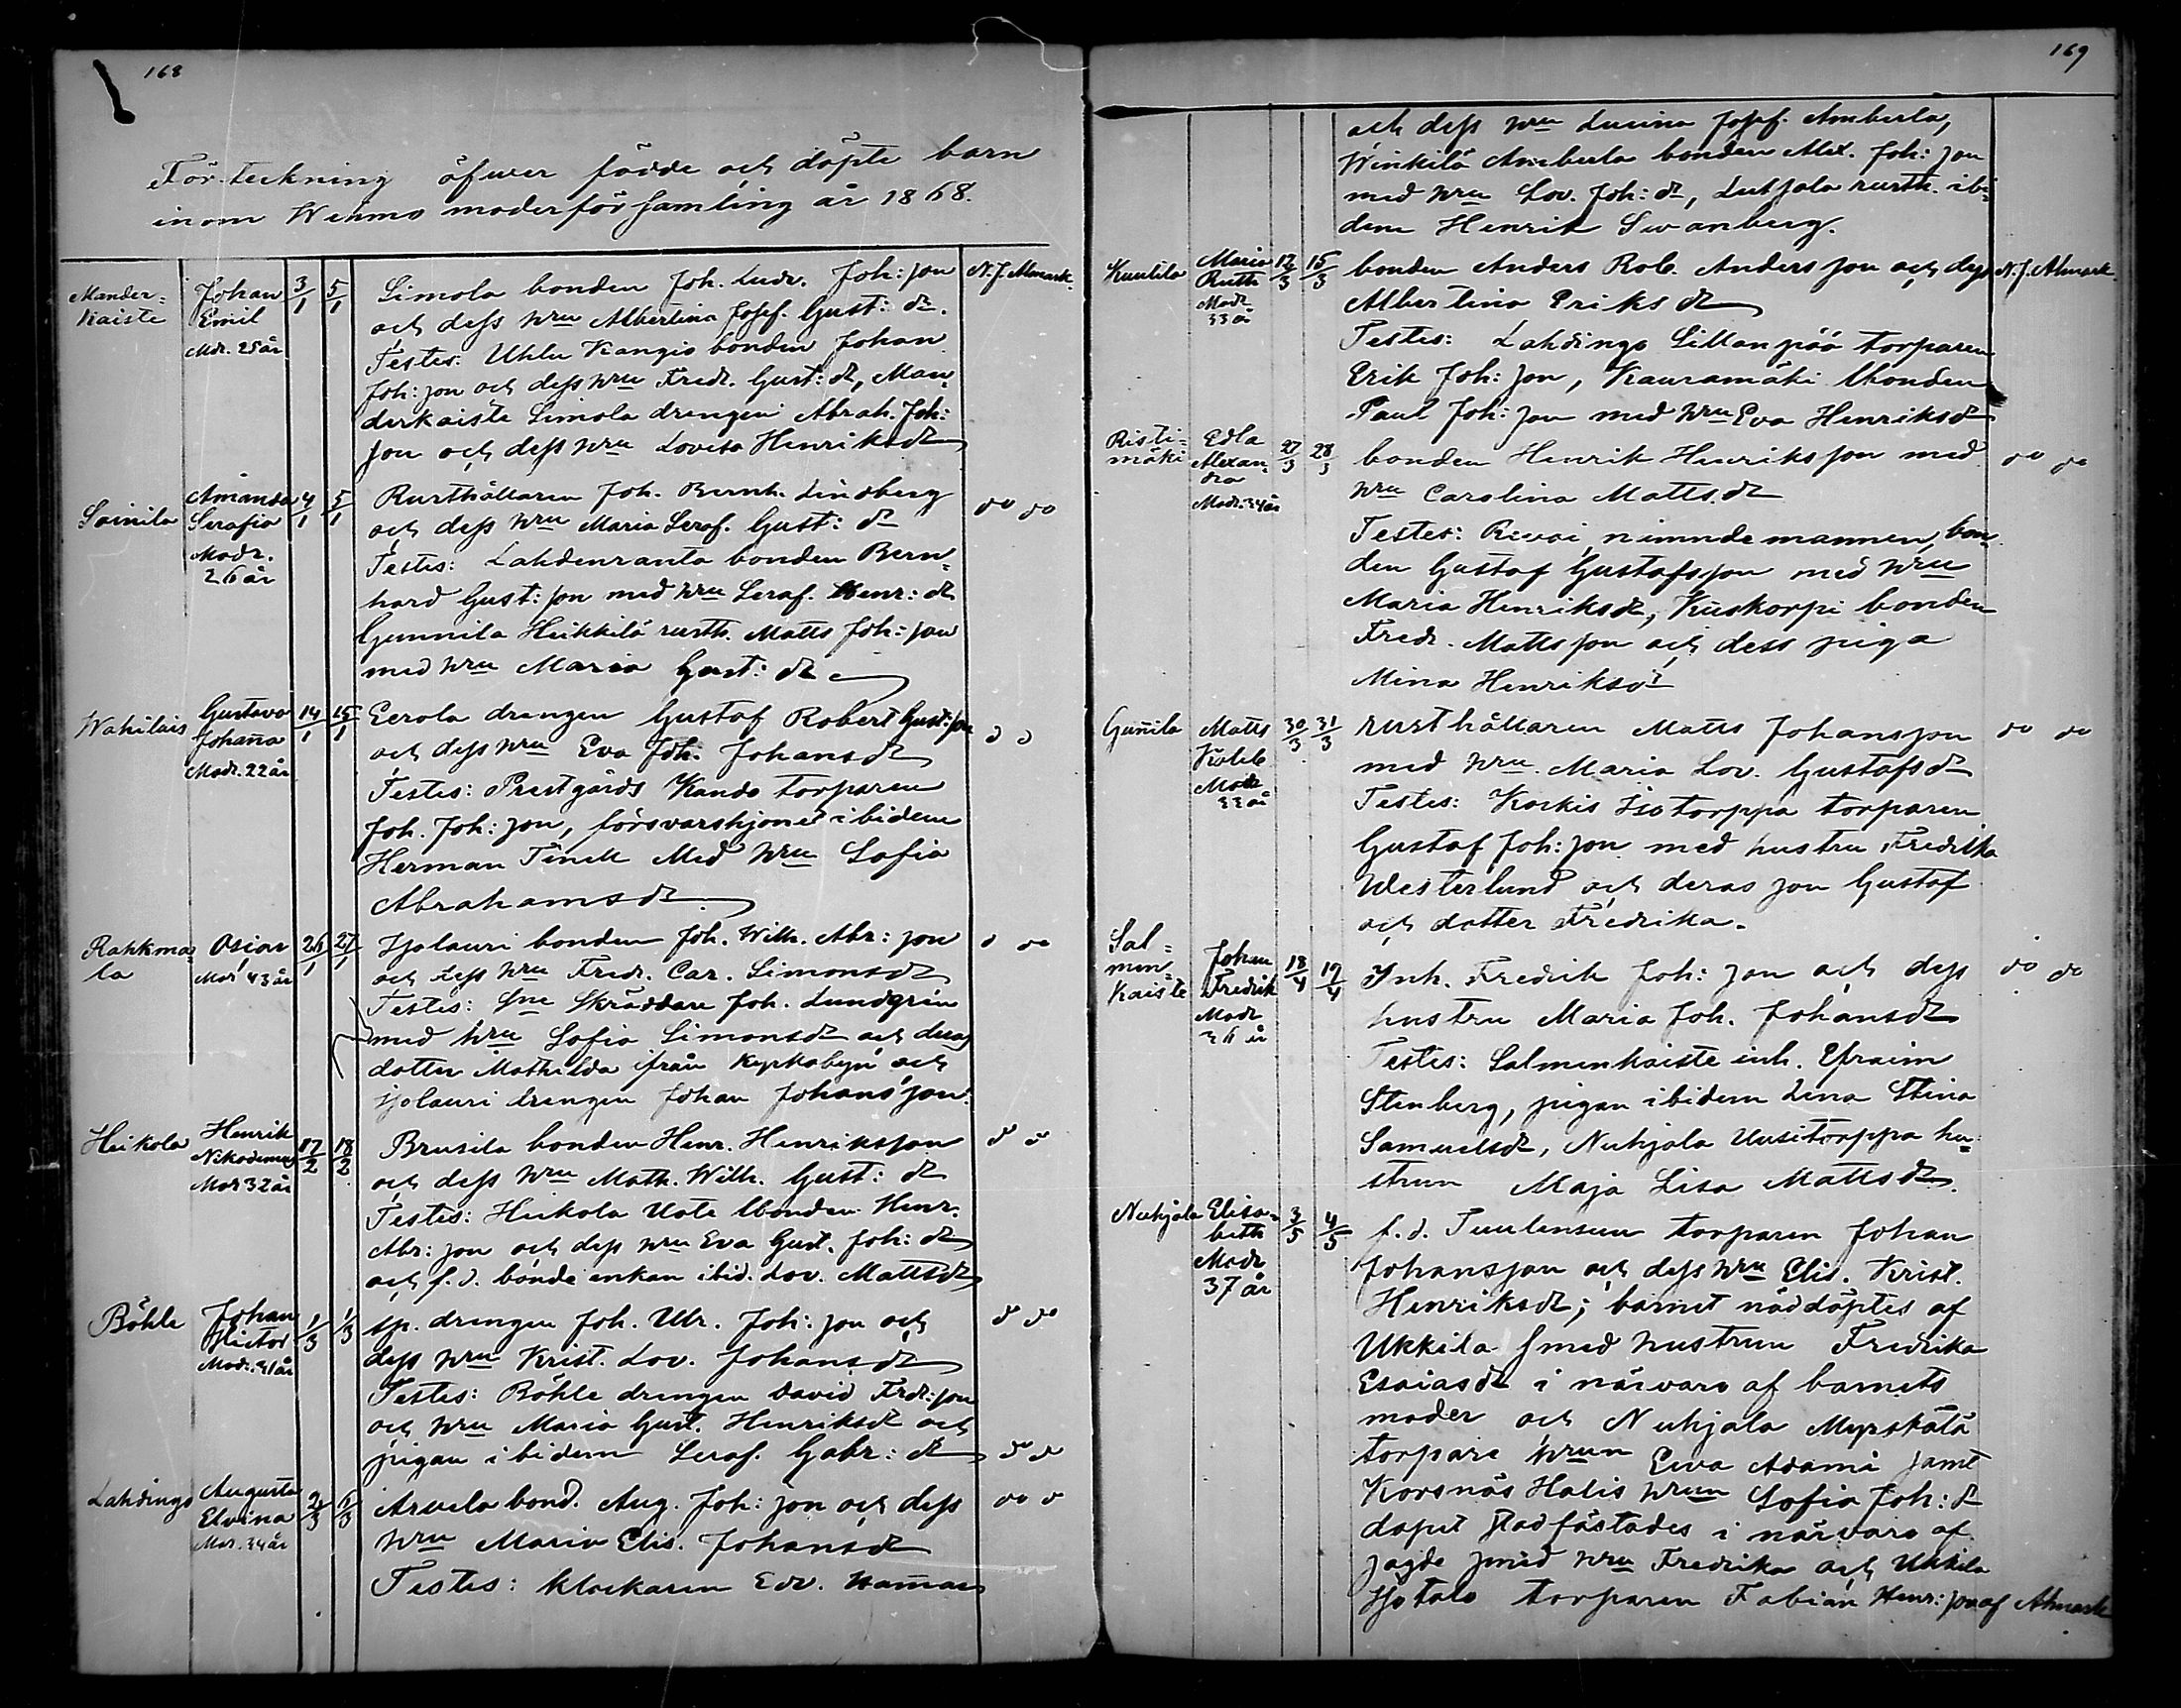 168
Förteckning öfwer födde och döpte barn
inom Wehmo moderförsamling år 1868.
Mander=
kaiste
Johan
Emil
Modr. 25 år
3/1 5/1
Simola bonden Joh. Ludv. Joh:son
och dess hru Albertina Josef. Gust: dr.
Testes: Uhlu Kangis bonden Johan
Joh:son och dess hru Fredr. Gust: dr, Man=
derkaiste Simola drengen Abrah. Joh:
son och dess hru Lovisa Henriksdr
N. J. Almark.
Sainila
Amanda
Serafia
Modr.
26 år
4/1 5/1
Rusthållaren Joh. Bernh. Lindberg
och dess hru Maria Seraf. Gust: dr
Testes: Lahdenranta bonden Bern=
hard Gust: son med hru Seraf. Henr: dr
Gunnila Heikkilä rusth. Matts Joh: son
med hru Maria Gust: dr
do do
Wahilais
Gustava
Johanna
Modr. 22 år
14/1 15/1
Eerola drengen Gustaf Robert Gust:son
och dess hru Eva Joh. Johansdr
Testes: Prestgårds Kando torparen
Joh. Joh: son, försvarshjonet ibidem
Herman Finell Med hru Sofia
Abrahamsdr
Rahkma=
la
Osior
Modr 43 år
26/1 27/1
Isolauri bonden Joh. Wilh. Abr: son
och dess hru Fredr. Car. Simonsdr
Testes: Sne Skräddare Joh. Lundgrén
med hru Sofia Simonsdr och deras
dotter Mathilda ifrån Kyrkobyn och
isolauri drengen Johan Johansson.
Heikola
Henrik
Nikodemus
Modr 32 år
17/2 18/2
Brusila bonden Henr. Henriksson
och dess hru Math. Wilh. Gust: dr
Testes: Heikola Uote bonden Henr.
Abr: son och dess hru Eva Gust. Joh: dr
och f. d. bonde enkan ibid. Lov. Mattsdr
Böhle
Johan
Hictor
Modr. 31 år
1/3 1/3
sp. drengen Joh. Ulr. Joh: son och
dess hru Krist. Lov. Johansdr
Testes: Böhle drengen David Fredr:son
och hru Maria Gust. Henriksdr och
pigan ibidem Seraf. Gabr: dr
Lahdingo
Augusta
Elvina
Modr. 34 år
2/3 6/3
Arvela bond. Aug. Joh: son och dess
hru Maria Elis. Johansdr
Testes: klockaren Edv. Hamar
169
och dess hru Lucina Josef. Amberla,
Winkilä Amberla bonden Alex. Joh: son
med hru Lov. Joh: dr, Lutjala rusth. ibi=
dem Henrik Swanberg.
Kuulila
Maria
Ruth
Modr
33 år
12/3 15/3
bonden Anders Rob. Andersson och dess
Albertina Eriksdr
Testes: Lahdingo Sillanpää torparen
Erik Joh: son, Kauramäki bonden
Paul Joh: son med hru Eva Henriksdr
N. J. Almark.
Risti=
mäki
Edla
Alexan=
dra
Modr. 34 år
27/3 28/3
bonden Henrik Henriksson med
hru Carolina Mattsdr
Testes: Rivoi nimndemannen, bon=
den Gustaf Gustafsson med hru
Maria Henriksdr, Kuskorpi bonden
Fredr. Mattsson och dess piga
Mina Henriksdr
do do
Gunnila
Matts
Modr
33 år
30/3 31/3
rusthållaren Matts Johansson
med hru Maria Lov. Gustafsdr
Testes: Korkis Isotorppa torparen
Gustaf Joh: son med hustru Fredrika
Westerlund och deras son Gustaf
och dotter Fredrika.
do do
Sal=
men=
kaiste
Johan
Fredrik
Modr
18/4 19/4
Inh. Fredrik Joh: son och dess
hustru Maria Joh. Johansdr
Testes: Salmenkaiste inh. Efraim
Stenberg, pigan ibidem Lena Stina
Samuelsdr, Nuhjala Uusitorppa hu=
strun Maja Lisa Mattsdr.
do do
Nuhjala
Elisa=
beth
Modr
37 år
3/5 4/5
f. d. Tuulensuu torparen Johan
Johansson och dess hru Elis. Krist.
Henriksdr; barnet nöddöptes af
Ukkila smed hustrun Fredrika
Esaiasdr i närvaro af barnets
moder och Nuhjala Myrskätä
torpare hrun Eeva Adami samt
Korsnäs Halis hrun Sofia Joh: dr
dopet stadfästades i närvaro af
sagde smed hru Fredrika och Ukkila
Isotalo torparen Fabian Henr: son af Almark